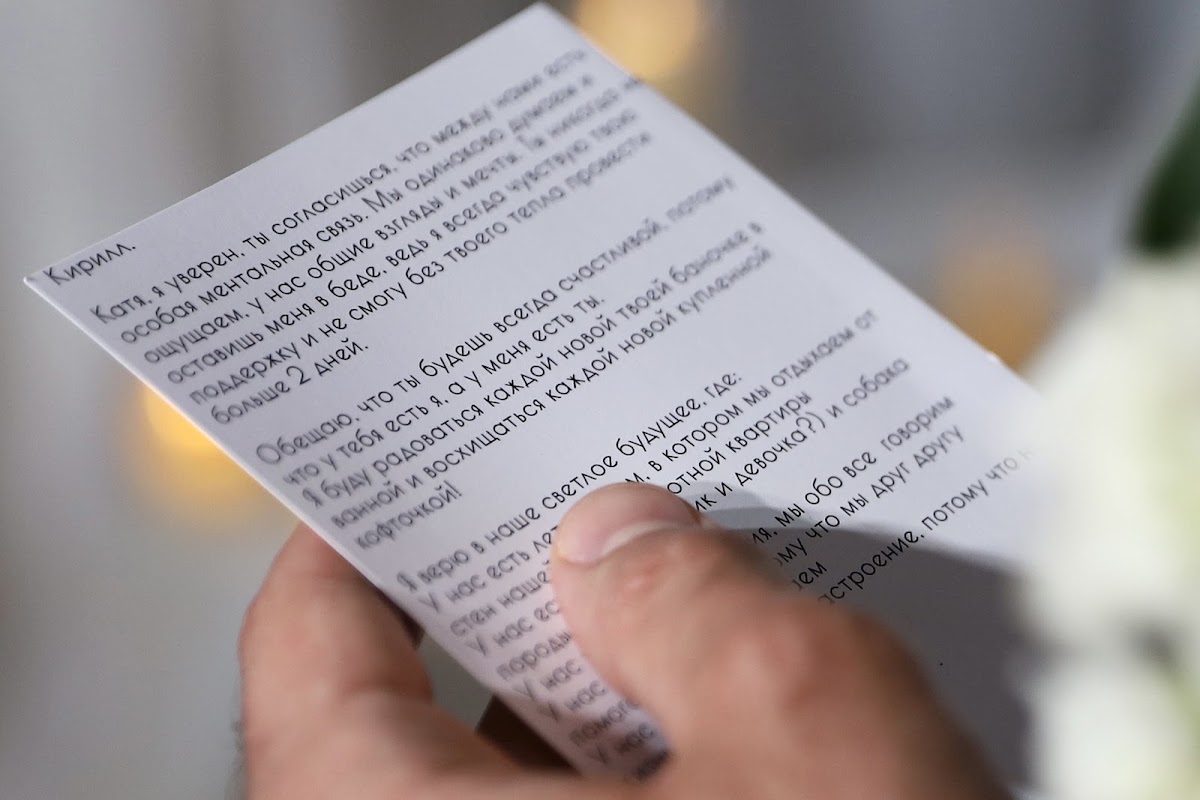 Кирилл.
Катя, я уверен, ты согласишься, что между нами есть
особая ментальная связь. Мы одинаково думаем и
ощущаем, у нас общие взгляды и мечты. Ты никогда не
оставишь меня в беде, ведь я всегда чувствую твою
поддержку и не смогу без твоего тепла провести
больше 2 дней.
Обещаю, что ты будешь всегда счастливой, потому
что у тебя есть я, а у меня есть ты.
Я буду радоваться каждой новой твоей баночке в
ванной и восхищаться каждой новой купленной
кофточкой!
Я верю в наше светлое будущее, где:
У нас есть в котором мы отдыхаем от
стен нашей квартиры
У нас и девочка?) и собака
породы
У нас мы обо все говорим
У нас что мы друг другу
У нас потому что